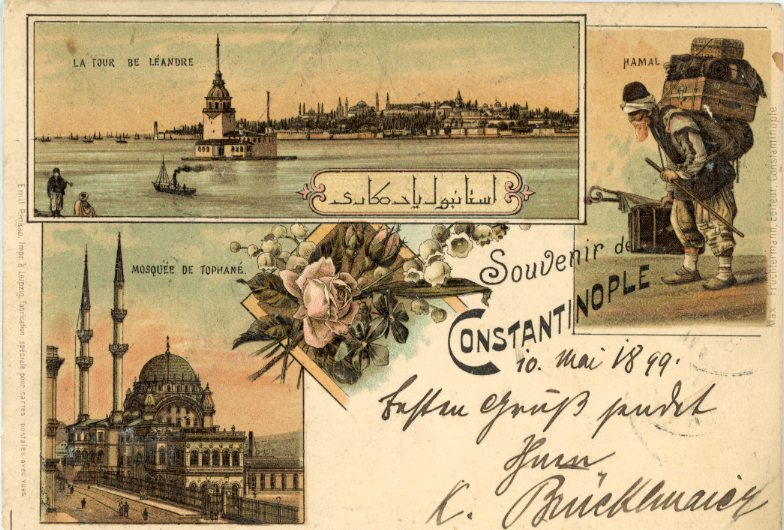 LA TOUR DE LÉANDRE
HAMAL
استانبول یادگاری
MOSQUÉE DE TOPHANÉ.
Souvenir de
CONSTANTINOPLE
10. Mai 1899.
Besten Gruß sendet
Ihnen
K. Brücklmaier
Emil Pinkau, Impr. à Leipzig, Fabrication spéciale pour cartes postales avec vues
Max Fruchtermann, Editeur, Constantinople